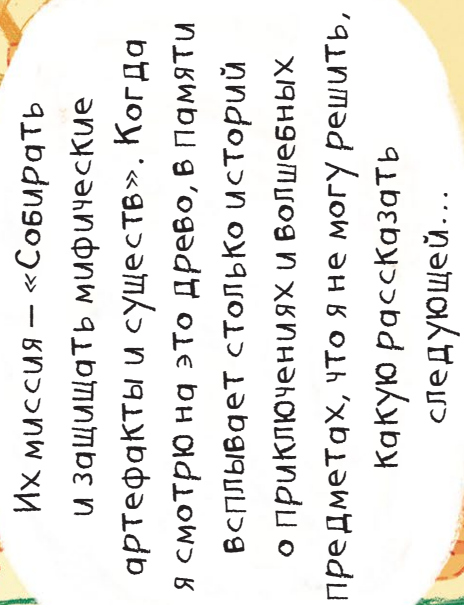 Их миссия – «Собирать
и защищать мифические
артефакты и существ». Когда
я смотрю на это древо, в памяти
всплывает столько историй
о приключениях и волшебных
предметах, что я не могу решить,
какую рассказать
следующей...